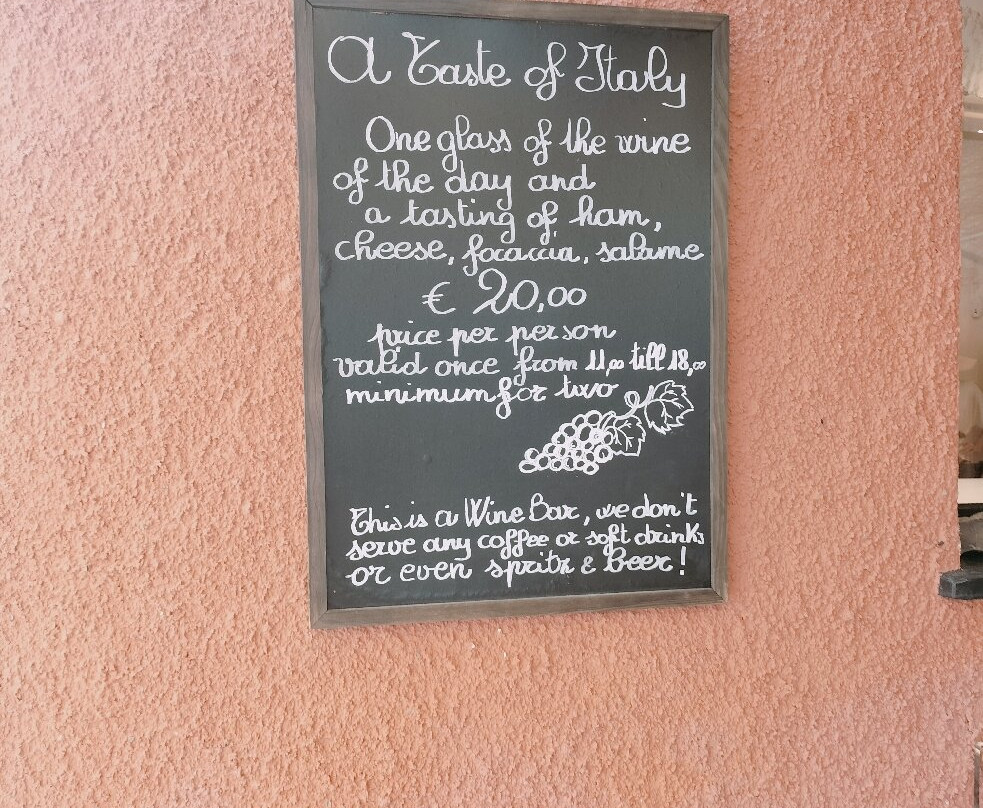 A Taste of Italy
One glass of the wine
of the day and
a tasting of ham,
cheese, focaccia, salame
€ 20,00
price per person
valid once from 11,00 till 18,00
minimum for two
This is a Wine Bar, we don't
serve any coffee or soft drinks
or even spritz & beer!